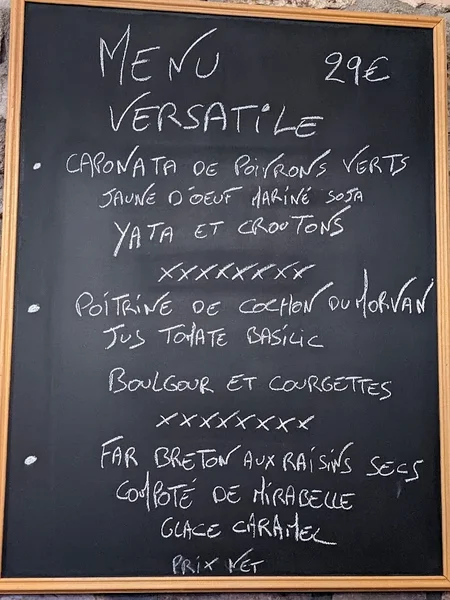 MENU 29€
VERSATILE
• CAPONATA DE POIVRONS VERTS
JAUNE D'OEUF MARINÉ SOJA
YATA ET CROUTONS
xxxxxxxx
• POITRINE DE COCHON DU MORVAN
JUS TOMATE BASILIC
BOULGOUR ET COURGETTES
xxxxxxxx
• FAR BRETON AUX RAISINS SECS
COMPOTÉ DE MIRABELLE
GLACE CARAMEL
PRIX NET